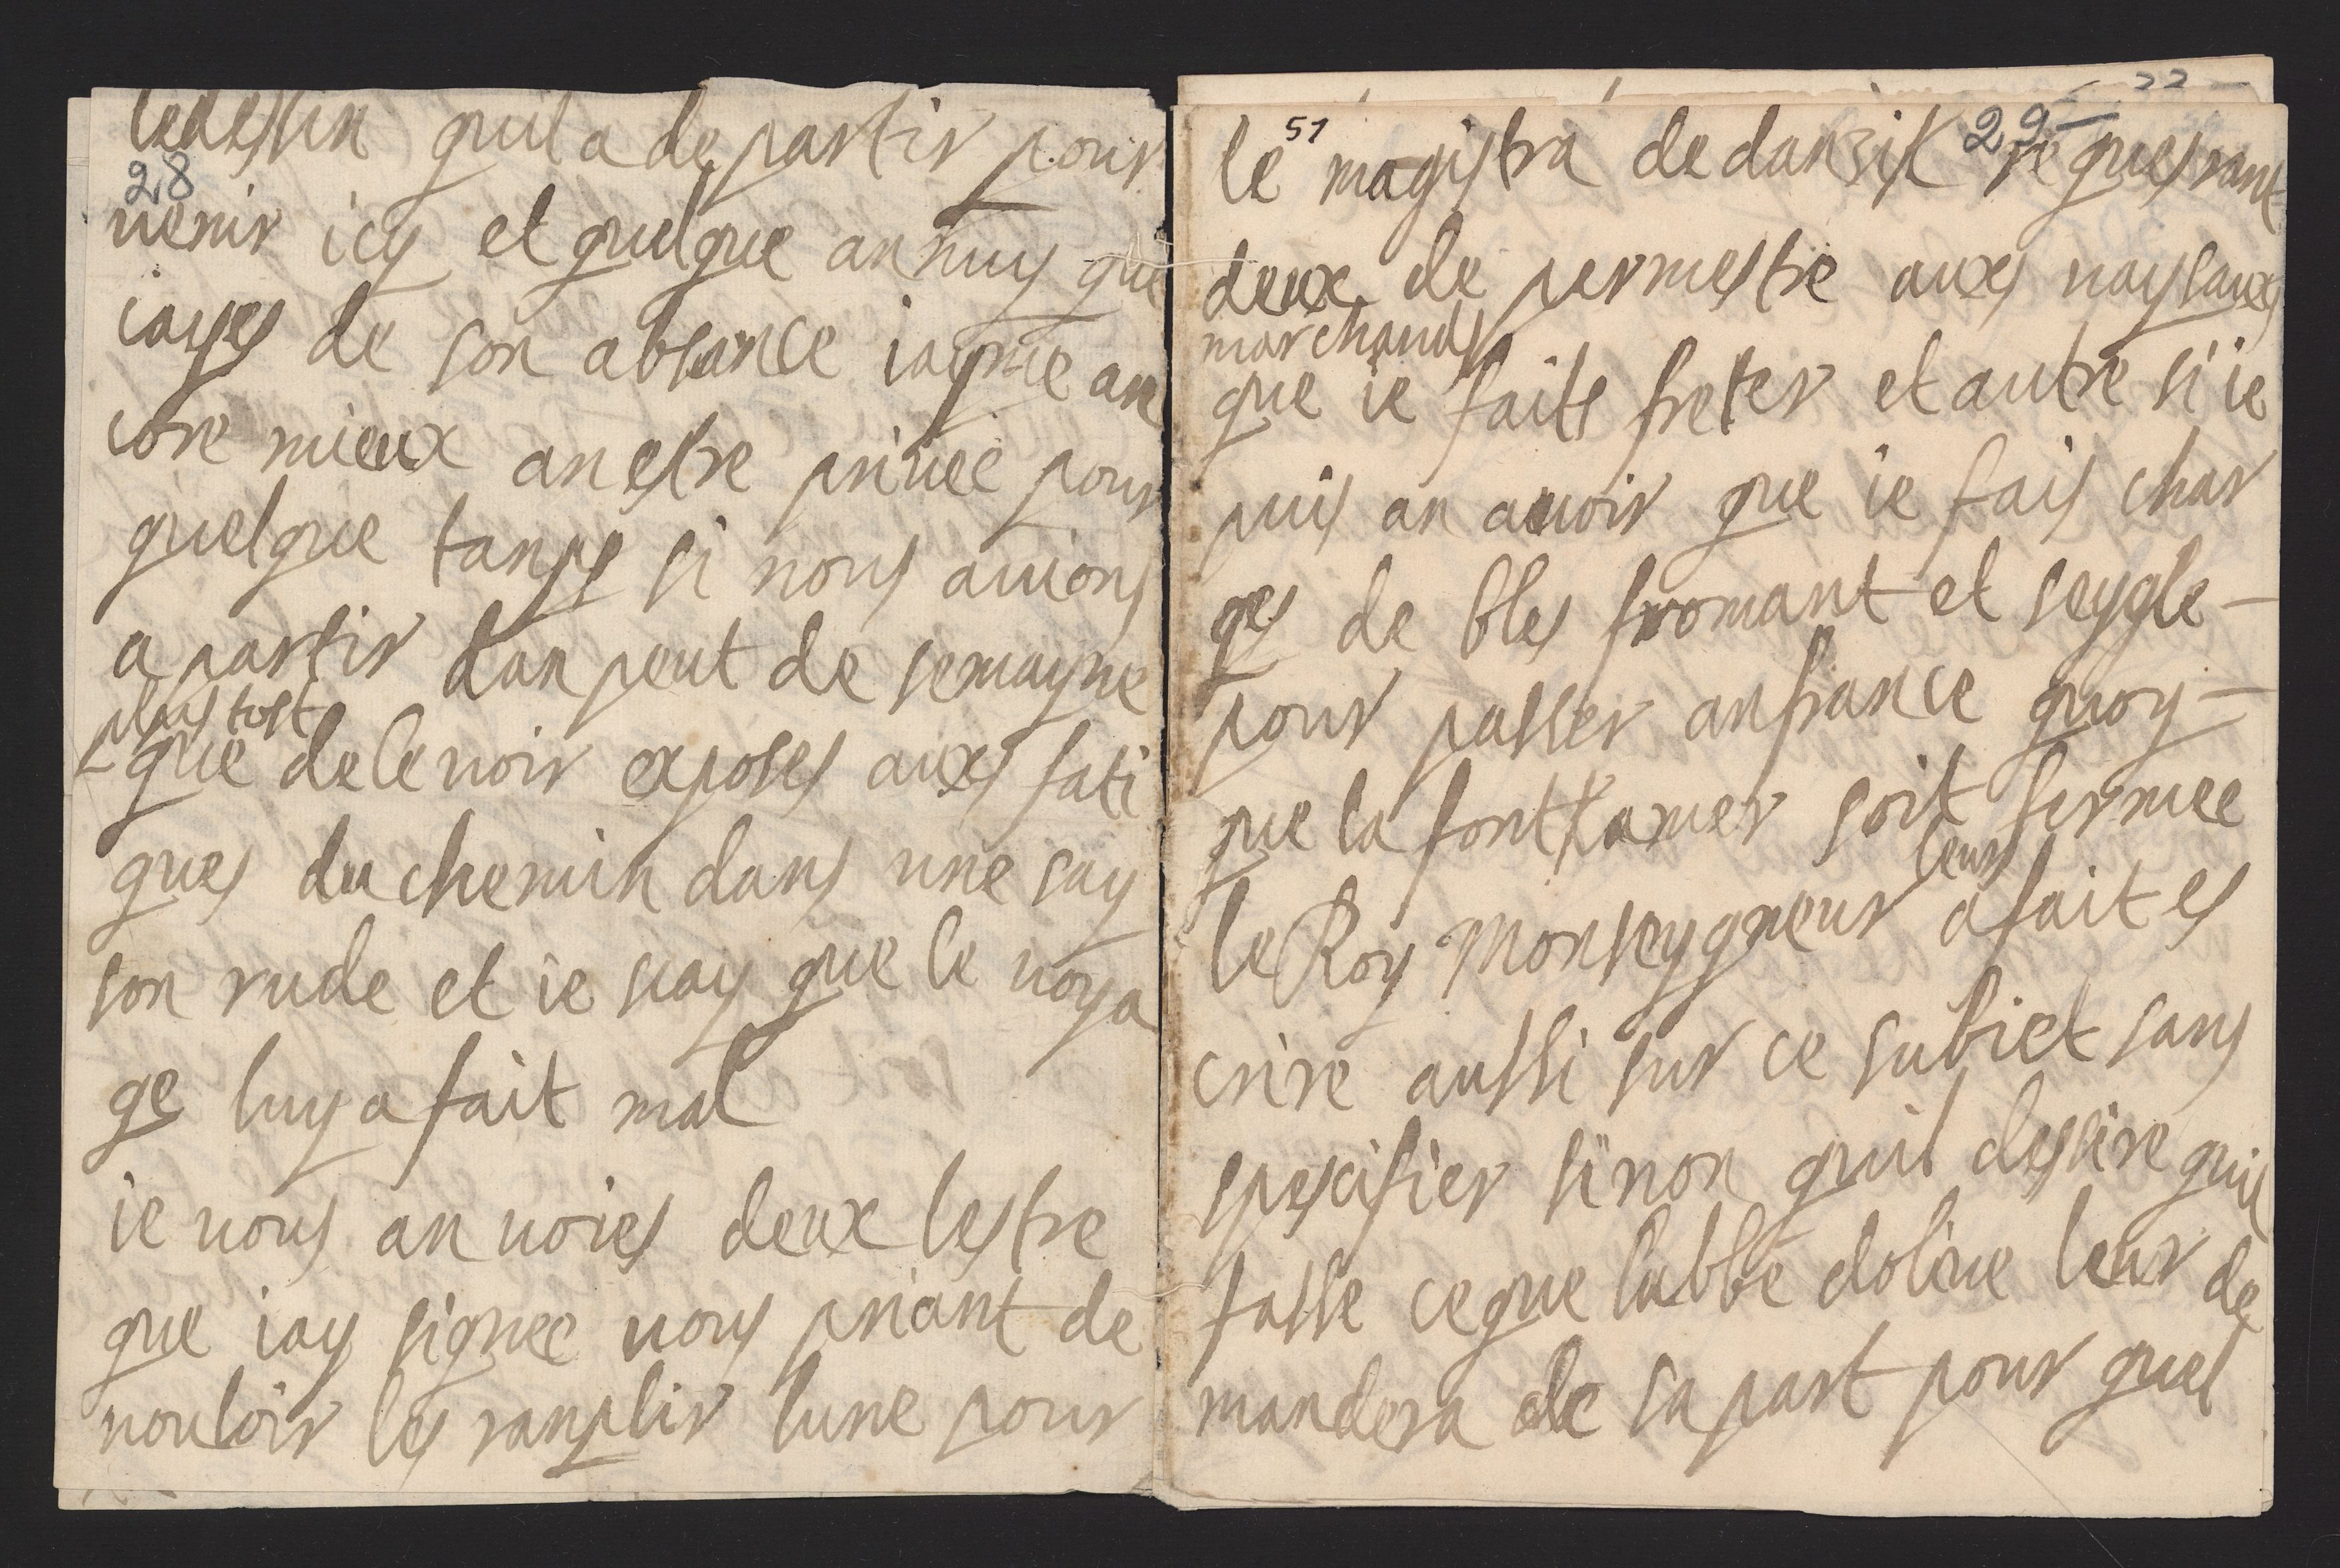 ledesin quil a de partir pour
28
uenir icy et quelque annuy que
iayes de son absance iayme an
core mieux an estre priuee pour
quelque tanps si nous auions
a partir dan peut de semayne
plus tost
que de le uoir exposes aux fati
gues du chemin dans une say
son rude et ie scay que le uoya
ge luy a fait mal
ie uous an uoies deux lestre
que iay signee uous priant de
uouloir les ranplir lune pour
51
29
le magistra de danzik requesrant
deux de permestre aux uaysaux
marchands
que ie faits freter et autre si ie
puis an auoir que ie fais char
ges de bles fromant et seygle
pour passer an france quoy
que la fontkamer soit fermee
leur
le Roy Monseygneur a fait es
crire aussi sur ce subiet sans
spescifier sinon quil desire quil
fasse ce que labbé doliue leur de
mandera de sa part pour quel